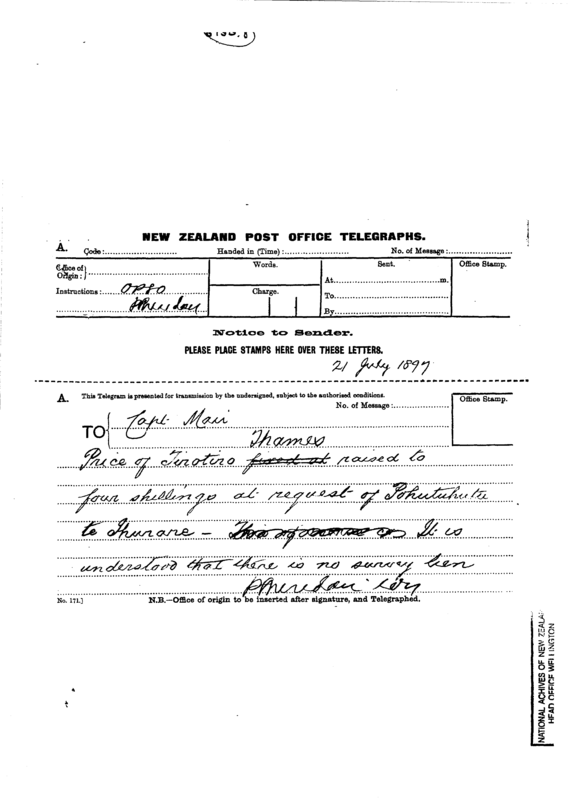 NEW ZEALAND POST OFFICE TELEGRAPHS.
A. Code:........................ Handed in (Time):...................... No. of Message:.....................
Office of Origin:
Words. Sent. Office Stamp.
At....................................m.
Instructions: OPSO Charge. To
By
Notice to Sender.
PLEASE PLACE STAMPS HERE OVER THESE LETTERS.
21 July 1897
A. This Telegram is presented for transmission by the undersigned, subject to the authorised conditions.
No. of Message:.................. Office Stamp.
TO Capt Mair
Thames
Price of Tirotiro fixed at raised to
four shillings at request of Pohutuhutu
te Thurare - It is
understood that there is no survey lien
PSheridan
No. 171.] N.B.—Office of origin to be inserted after signature, and Telegraphed.
NATIONAL ACHIVES OF NEW ZEALA
HEAD OFFICE WELLINGTON